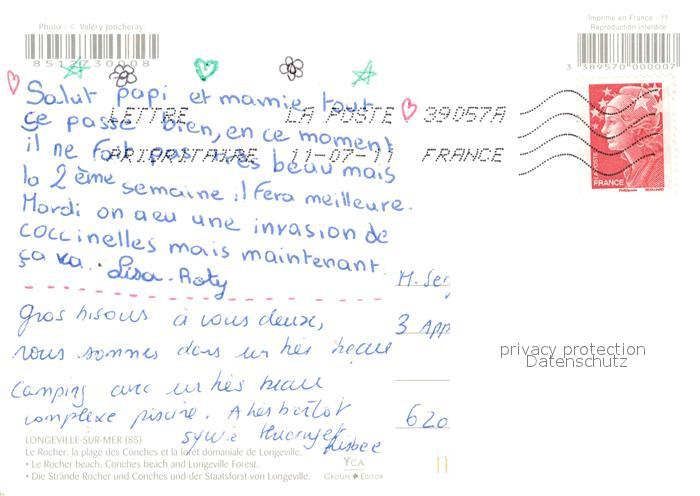 Photo : © Valéry Joncheray.
8512730008
Imprimé en France - 11
Reproduction interdite
3 389570 000007
LETTRE LA POSTE 39057A
PRIORITAIRE 11-07-11 FRANCE
LA POSTE
FRANCE
Salut papi et mamie tout
ce passe bien, en ce moment
il ne fait pas très beau mais
la 2 ème semaine il fera meilleure.
Mardi on a eu une invasion de
coccinelles mais maintenant
ça va. Lisa-Roty
Gros bisous à vous deux,
nous sommes dans un très beau
camping avec un très beau
complexe piscine. A très bientôt
sylvie
M. Ser
3 App
620
privacy protection
Datenschutz
LONGEVILLE-SUR-MER (85)
Le Rocher, la plage des Conches et la forêt domaniale de Longeville.
• Le Rocher beach, Conches beach and Longeville Forest.
• Die Strände Rocher und Conches und der Staatsforst von Longeville.
YCA
GROUPE EDITOR